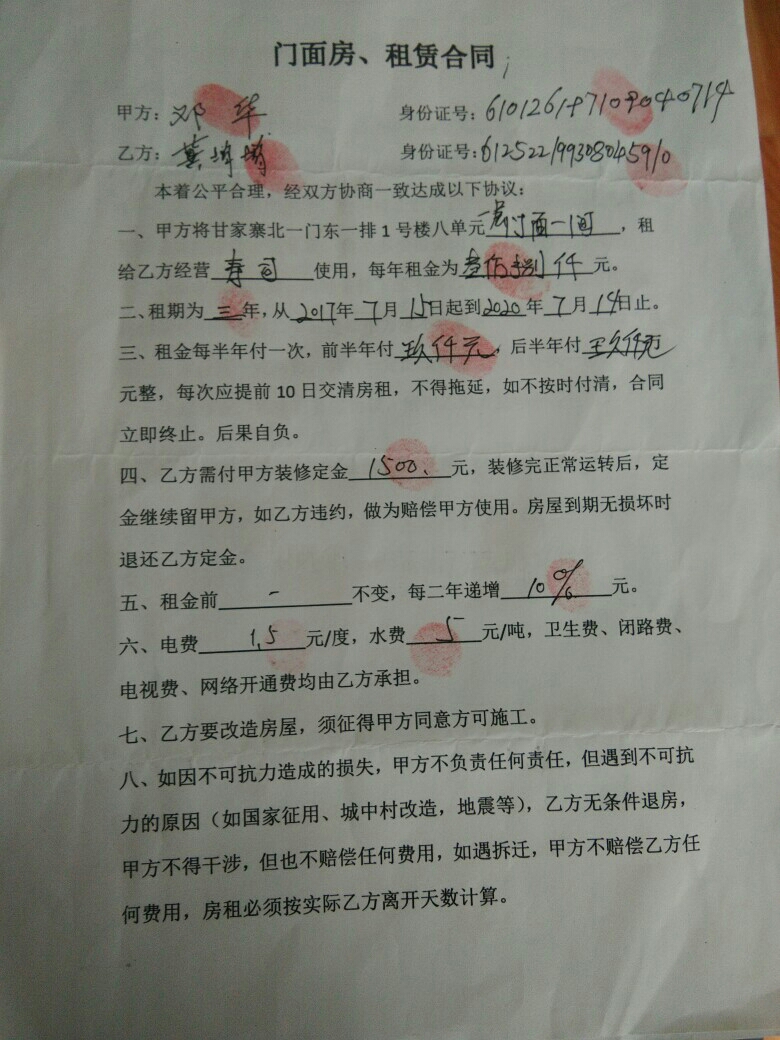 门面房、租赁合同
甲方：邓华 身份证号：610126197109040714
乙方：龚 身份证号：612522199308045910
本着公平合理，经双方协商一致达成以下协议：
一、甲方将甘家寨北一门东一排1号楼八单元 门面一间，租
给乙方经营寿司使用，每年租金为壹 捌仟元。
二、租期为三年，从2017年7月15日起到2020年7月14日止。
三、租金每半年付一次，前半年付玖仟元，后半年付玖仟元
元整，每次应提前10日交清房租，不得拖延，如不按时付清，合同
立即终止。后果自负。
四、乙方需付甲方装修定金1500、元，装修完正常运转后，定
金继续留甲方，如乙方违约，做为赔偿甲方使用。房屋到期无损坏时
退还乙方定金。
五、租金前 - 不变，每二年递增10%元。
六、电费1.5元/度，水费5元/吨，卫生费、闭路费、
电视费、网络开通费均由乙方承担。
七、乙方要改造房屋，须征得甲方同意方可施工。
八、如因不可抗力造成的损失，甲方不负责任何责任，但遇到不可抗
力的原因（如国家征用、城中村改造，地震等），乙方无条件退房，
甲方不得干涉，但也不赔偿任何费用，如遇拆迁，甲方不赔偿乙方任
何费用，房租必须按实际乙方离开天数计算。